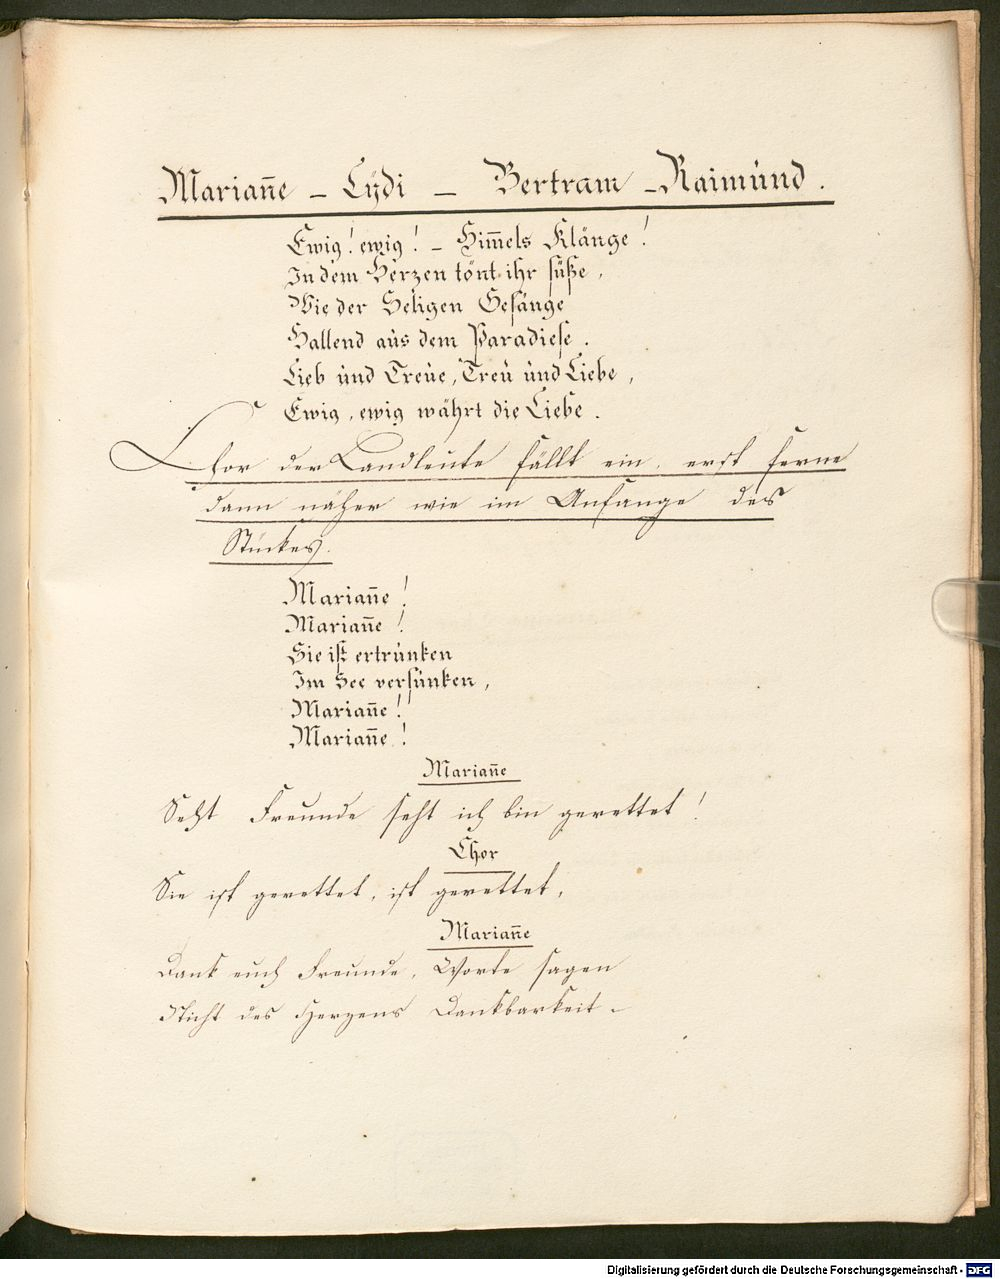 Mariañe – Lÿdi – Bertram – Raimund.
Ewig! ewig! – Him̄els Klänge!
In dem Herzen tönt ihr süße,
Wie der Seligen Gesänge
Hallend aus dem Paradiese.
Lieb und Treue, Treu und Liebe,
Ewig, ewig währt die Liebe.
Chor der Landleute fällt ein, erst ferne
dann näher wie im Anfange des
Stückes.
Mariañe!
Mariañe!
Sie ist ertrunken
Im See versunken,
Mariañe!
Mariañe!
Mariañe
Seht Freunde seht ich bin gerettet!
Chor
Sie ist gerettet, ist gerettet,
Mariañe
Dank euch Freunde, Worte sagen
Nicht des Herzens Dankbarkeit –
Digitalisierung gefördert durch die Deutsche Forschungsgemeinschaft - DFG